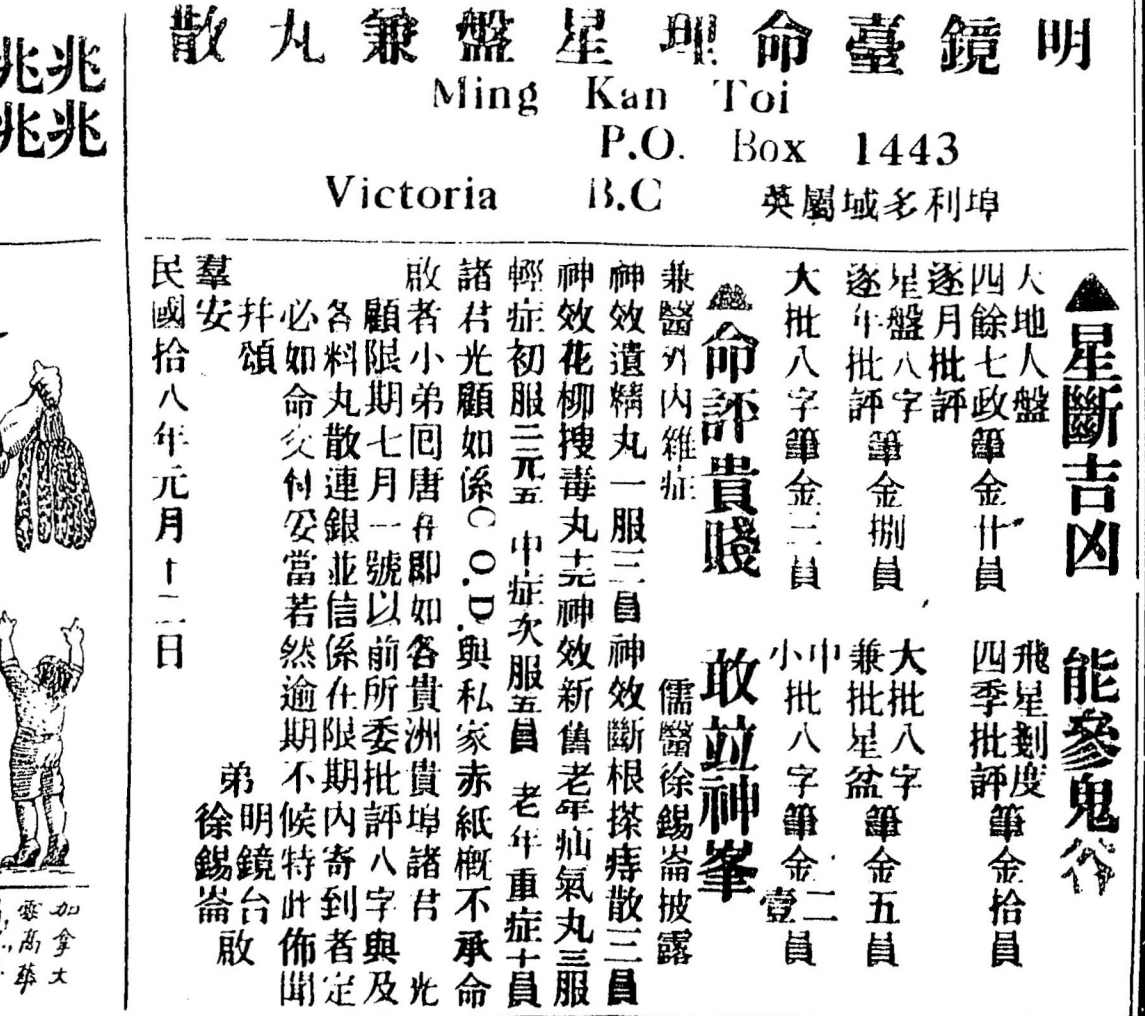 明鏡臺命理星盤兼丸散
Ming Kan Toi
P.O. Box 1443
Victoria B.C
英屬域多利埠
▲星斷吉凶 能參鬼谷
天地人盤 飛星剗度
四餘七政筆金廿員 四季批評筆金拾員
逐月批評
星盤八字 大批八字
逐年批評筆金捌員 兼批星盆筆金五員
大批八字筆金三員 中小批八字筆金二壹員
▲命評貴賤 敢並神峯
兼醫外內雜症 儒醫徐錫崙披露
神效遺精丸一服三員神效斷根搽痔散三員
神效花柳搜毒丸 神效新舊老年疝氣丸三服
輕症初服二元五 中症次服五員 老年重症十員
諸君光顧如係C.O.D.與私家赤紙概不承命
啟者小弟囘唐在即如各貴洲貴埠諸君 光
顧限期七月一號以前所委批評八字與及
各料丸散連銀並信係在限期內寄到者定
必如命交付妥當若然逾期不候特此佈聞
并頌
羣安
弟明鏡台徐錫崙啟
民國拾八年元月十二日
兆兆
兆兆
加拿大
雲高華